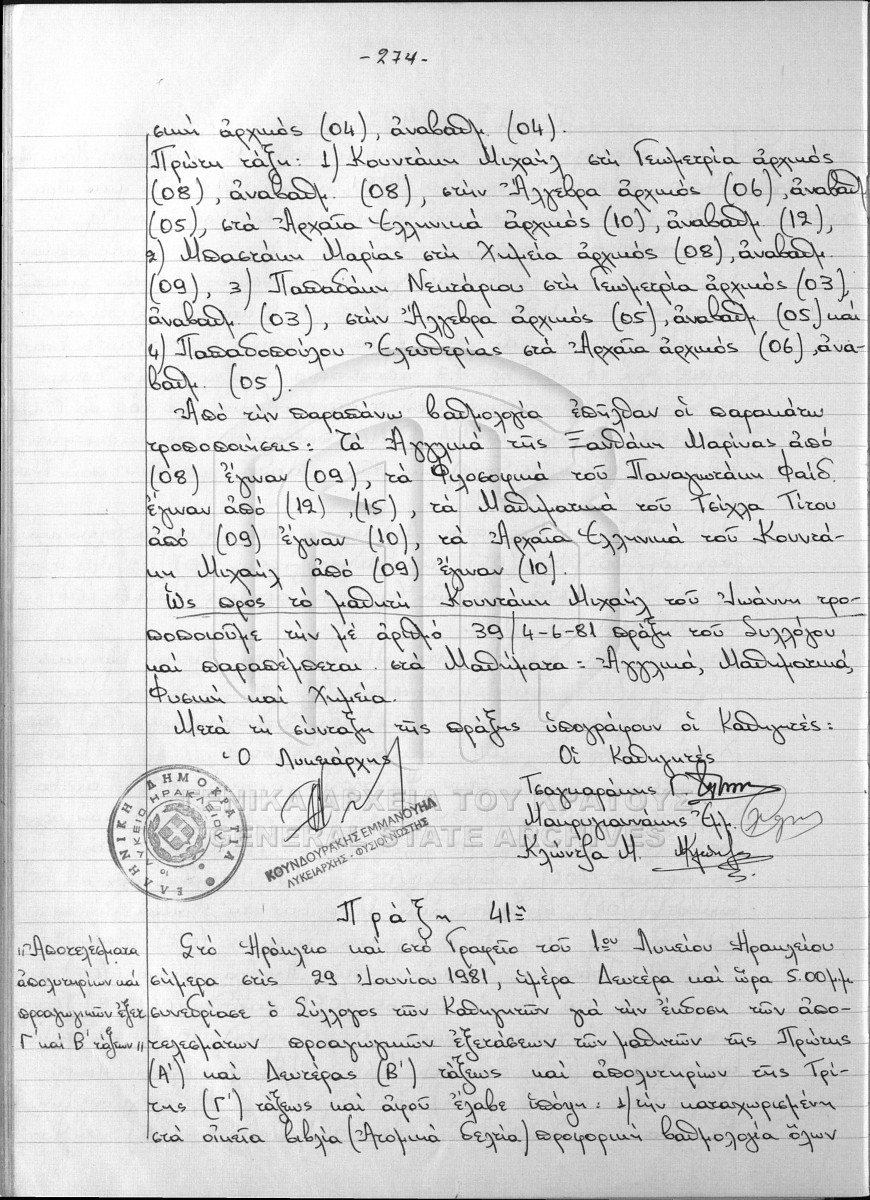 -274-
σική ἀρχικός (04), ἀναβαθμ. (04).
Πρώτη τάξη: 1) Κουντάκη Μιχαήλ στή Γεωμετρία ἀρχικός
(08), ἀναβαθμ. (08), στήν Ἄλγεβρα ἀρχικός (06), ἀναβαθμ
(05), στά Ἀρχαῖα Ἑλληνικά ἀρχικός (10), ἀναβαθμ (12),
2) Μπαστάκη Μαρίας στή Χημεία ἀρχικός (08), ἀναβαθμ.
(09), 3) Παπαδάκη Νεκτάριου στή Γεωμετρία ἀρχικός (03),
ἀναβαθμ. (03), στήν Ἄλγεβρα ἀρχικός (05), ἀναβαθμ (05) καί
4) Παπαδοπούλου Ἐλευθερίας στά Ἀρχαῖα ἀρχικός (06), ἀνα-
βαθμ. (05).
Ἀπό τήν παραπάνω βαθμολογία ἐπῆλθαν οἱ παρακάτω
τροποποιήσεις: Τά Ἀγγλικά τῆς Ξανθάκη Μαρίνας ἀπό
(08) ἔγιναν (09), τά Φιλοσοφικά τοῦ Παναγιωτάκη Φαίδ.
ἔγιναν ἀπό (12), (15), τά Μαθηματικά τοῦ Τσίχλα Τίτου
ἀπό (09) ἔγιναν (10), τά Ἀρχαῖα Ἑλληνικά τοῦ Κουντά-
κη Μιχαήλ ἀπό (09) ἔγιναν (10).
Ὡς πρός τό μαθητή Κουντάκη Μιχαήλ τοῦ Ἰωάννη τρο-
ποποιοῦμε τήν μέ ἀριθμό 39/4-6-81 πράξη τοῦ Συλλόγου
καί παραπέμπεται στά Μαθήματα: Ἀγγλικά, Μαθηματικά,
Φυσική καί Χημεία.
Μετά τή σύνταξη τῆς πράξης ὑπογράφουν οἱ Καθηγητές:
Ὁ Λυκειάρχης Οἱ Καθηγητές
Τσαγκαράκης Γ.
Μαυρογιαννάκης Ἐμ.
Κλώντζα Μ.
ΕΛΛΗΝΙΚΗ ΔΗΜΟΚΡΑΤΙΑ
1ο ΛΥΚΕΙΟ ΗΡΑΚΛΕΙΟΥ
ΚΟΥΝΔΟΥΡΑΚΗΣ ΕΜΜΑΝΟΥΗΛ
ΛΥΚΕΙΑΡΧΗΣ - ΦΥΣΙΟΓΝΩΣΤΗΣ
ΓΕΝΙΚΑ ΑΡΧΕΙΑ ΤΟΥ ΚΡΑΤΟΥΣ
GENERAL STATE ARCHIVES
Πράξη 41η
"Ἀποτελέσματα
ἀπολυτηρίων καί
προαγωγικῶν ἐξετ
Γ' καί Β' τάξεων"
Στό Ἡράκλειο καί στό Γραφεῖο τοῦ 1ου Λυκείου Ἡρακλείου
σήμερα στίς 29 Ἰουνίου 1981, ἡμέρα Δευτέρα καί ὥρα 5.00μμ
συνεδρίασε ὁ Σύλλογος τῶν Καθηγητῶν γιά τήν ἔκδοση τῶν ἀπο-
τελεσμάτων προαγωγικῶν ἐξετάσεων τῶν μαθητῶν τῆς Πρώτης
(Α') καί Δευτέρας (Β') τάξεως καί ἀπολυτηρίων τῆς Τρί-
της (Γ') τάξεως καί ἀφοῦ ἔλαβε ὑπόψη: 1) τήν καταχωρισμένη
στά οἰκεῖα βιβλία (Ἀτομικά δελτία) προφορική βαθμολογία ὅλων